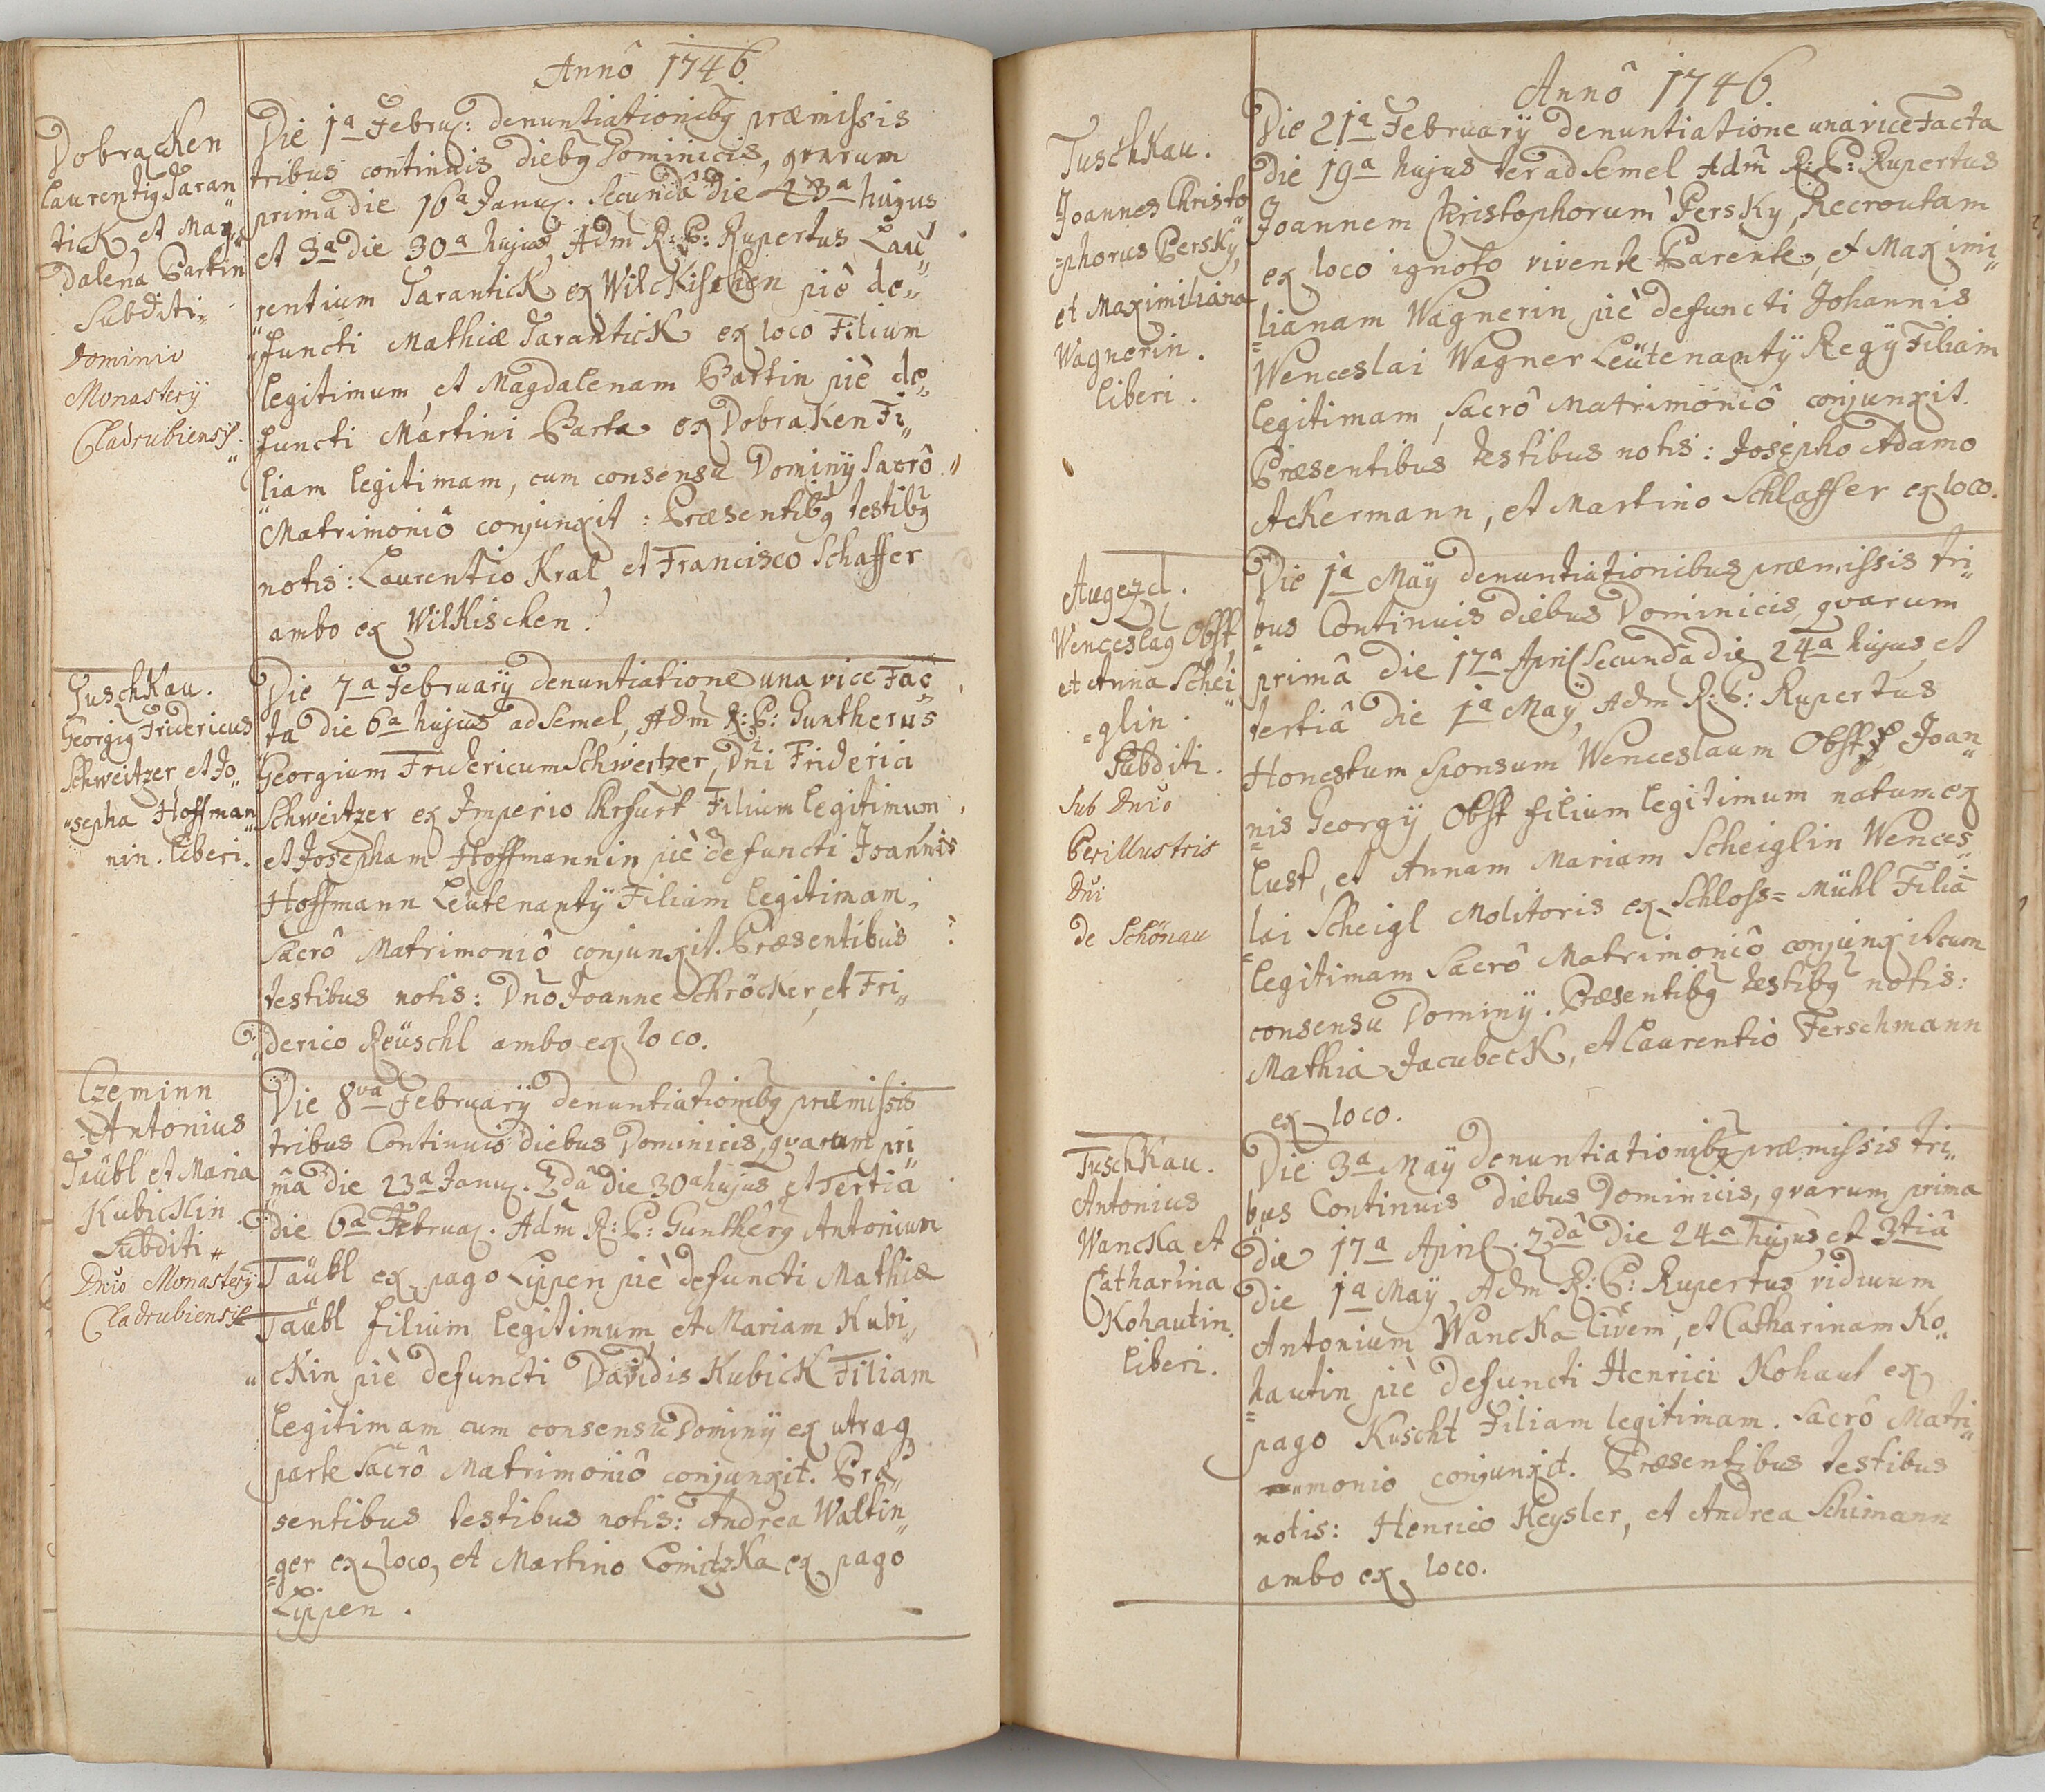 Annô 1746.
Dobracken
Laurentig Taran
tick et Mag„
dalena Partin
Subditi„
Dominio
Monasterÿ
Cladrubiensis.
Die 1a Febru: denuntiationibg præmissis
tribus continuis diebg Dominicis, qvarum
prima die 16a Janu. Secundâ die 23a hujus
et 3a die 30a hujus, Adm R: P: Rupertus Lau„
rentium Tarantick ex Wilckischen piè de„
functi Mathiæ Tarantick ex loco Filium
legitimum, et Magdalenam Partin piè de„
functi Martini Parta ex Dobraken Fi„
liam legitimam, cum consensu Dominÿ Sacrô
Matrimoniô conjunxit: Præsentibg testibg
notis: Laurentio Kral, et Francisco Schaffer
ambo ex Wilkischen.
Tuschkau.
Georgig Fridericus
Schweitzer, et Jo„
„sepha Hoffman„
nin. liberi.
Die 7a Februarÿ denuntiatione una vice Fac„
ta die 6a hujus ad Semel, Adm R: P: Guntherus
Georgium Fridericum Schweitzer, Dni Friderici
Schweitzer ex Imperio Ehrfurt Filium legitimum,
et Josepham Hoffmannin piè defuncti Joannis
Hoffmann Leutenantÿ Filiam legitimam,
Sacrô Matrimoniô conjunxit. Præsentibus
testibus notis: Dno Joanne Schröcker, et Fri„
derico Reüschl ambo ex loco.
Czeminn
Antonius
Taübl et Maria
Kubickin
Subditi„
Dnio Monasterÿ
Cladrubiensis
Die 8va Februarÿ denuntiationibg præmissis
tribus Continuis diebus Dominicis, qvarum pri„
mâ die 23a Janu. 2dâ die 30a hujus et Tertiâ
die 6a Februa. Adm R: P: Guntherg Antonium
Taübl ex pago Lippen piè defuncti Mathiæ
Taübl filium legitimum, et Mariam Kubi„
„ckin piè defuncti Davidis Kubick Filiam
legitimam cum consensu Dominÿ ex utraq
parte Sacrô Matrimoniô conjunxit. Præ„
sentibus testibus notis: Andrea Waltin„
=ger ex loco, et Martino Lomitzka ex pago
Lippen.
Annô 1746.
Tuschkau.
Joannes Christo„
=phorus Persky,
et Maximiliana
Wagnerin.
liberi.
Die 21a Februarÿ denuntiatione una vice Facta
die 19a hujus ter ad Semel Adm R: P: Rupertus
Joannem Christophorum Persky, Recroutam
ex loco ignoto vivente Parente, et Maximi„
=lianam Wagnerin piè defuncti Johannis
Wenceslai Wagner Leütenantÿ Regÿ Filiam
legitimam, Sacrô Matrimoniô conjunxit.
Præsentibus testibus notis: Josepho Adamo
Ackermann, et Martino Schlaffer ex loco.
Augezd.
Wenceslag Obst,
et Anna Schei„
=glin.
Subditi.
Sub Dnio
Perillustris
Dni
de Schönau
Die 1a Maÿ denuntiationibus præmissis tri„
=bus Continuis diebus Dominicis, qvarum
primâ die 17a April Secunda die 24a hujus, et
tertiâ die 1a Maÿ, Adm R: P: Rupertus
Honestum Sponsum Wenceslaum Obst Joan„
=nis Georgÿ Obst filium legitimum natum ex
Lust, et Annam Mariam Scheiglin Wences„
=lai Scheigl Molitoris ex Schloss=Mühl Filiā
legitimam Sacrô Matrimoniô conjunxit cum
consensu Dominÿ. Præsentibg testibg notis:
Mathia Jacubeck, et Laurentio Ferschmann
ex loco.
Tuschkau.
Antonius
Wancka et
Catharina
Kohautin.
liberi.
Die 3a Maÿ denuntiationibg præmissis tri„
bus Continuis diebus Dominicis, qvarum prima
die 17a April. 2dâ die 24a hujus, et 3tiâ
die 1a Maÿ, Adm R: P: Rupertus viduum
Antonium Wancka Civem, et Catharinam Ko„
=hautin piè defuncti Henrici Kohaut ex
pago Kuscht Filiam legitimam. Sacrô Matri„
„monio conjunxit. Præsentibus testibus
notis: Henrico Keysler, et Andrea Schimann
ambo ex loco.